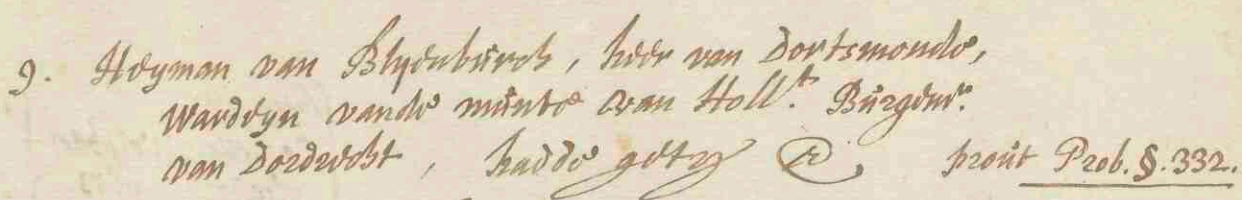 9. Heyman van Blyenburch, heer van Dortsmonde,
Wardeyn vande munte van Holl.t Burgem.r
van Dordrecht, hadde getr &c, prout Prob. §. 332.